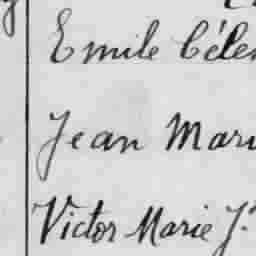 Emile Céles
Jean Mari
Victor Marie J.